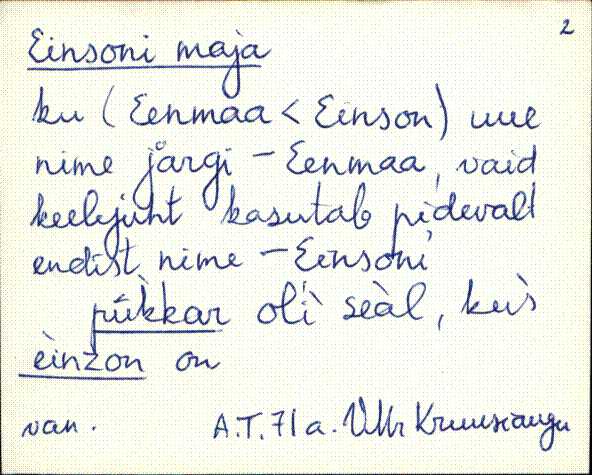 2
Einsoni maja
ku (Eenmaa < Einson) uue
nime järgi - Eenmaa, vaid
keelejuht kasutab pidevalt
endist nime - Einsoni
pùkkar olì seàl, kus
èinzon on
van. A.T. 71 a.